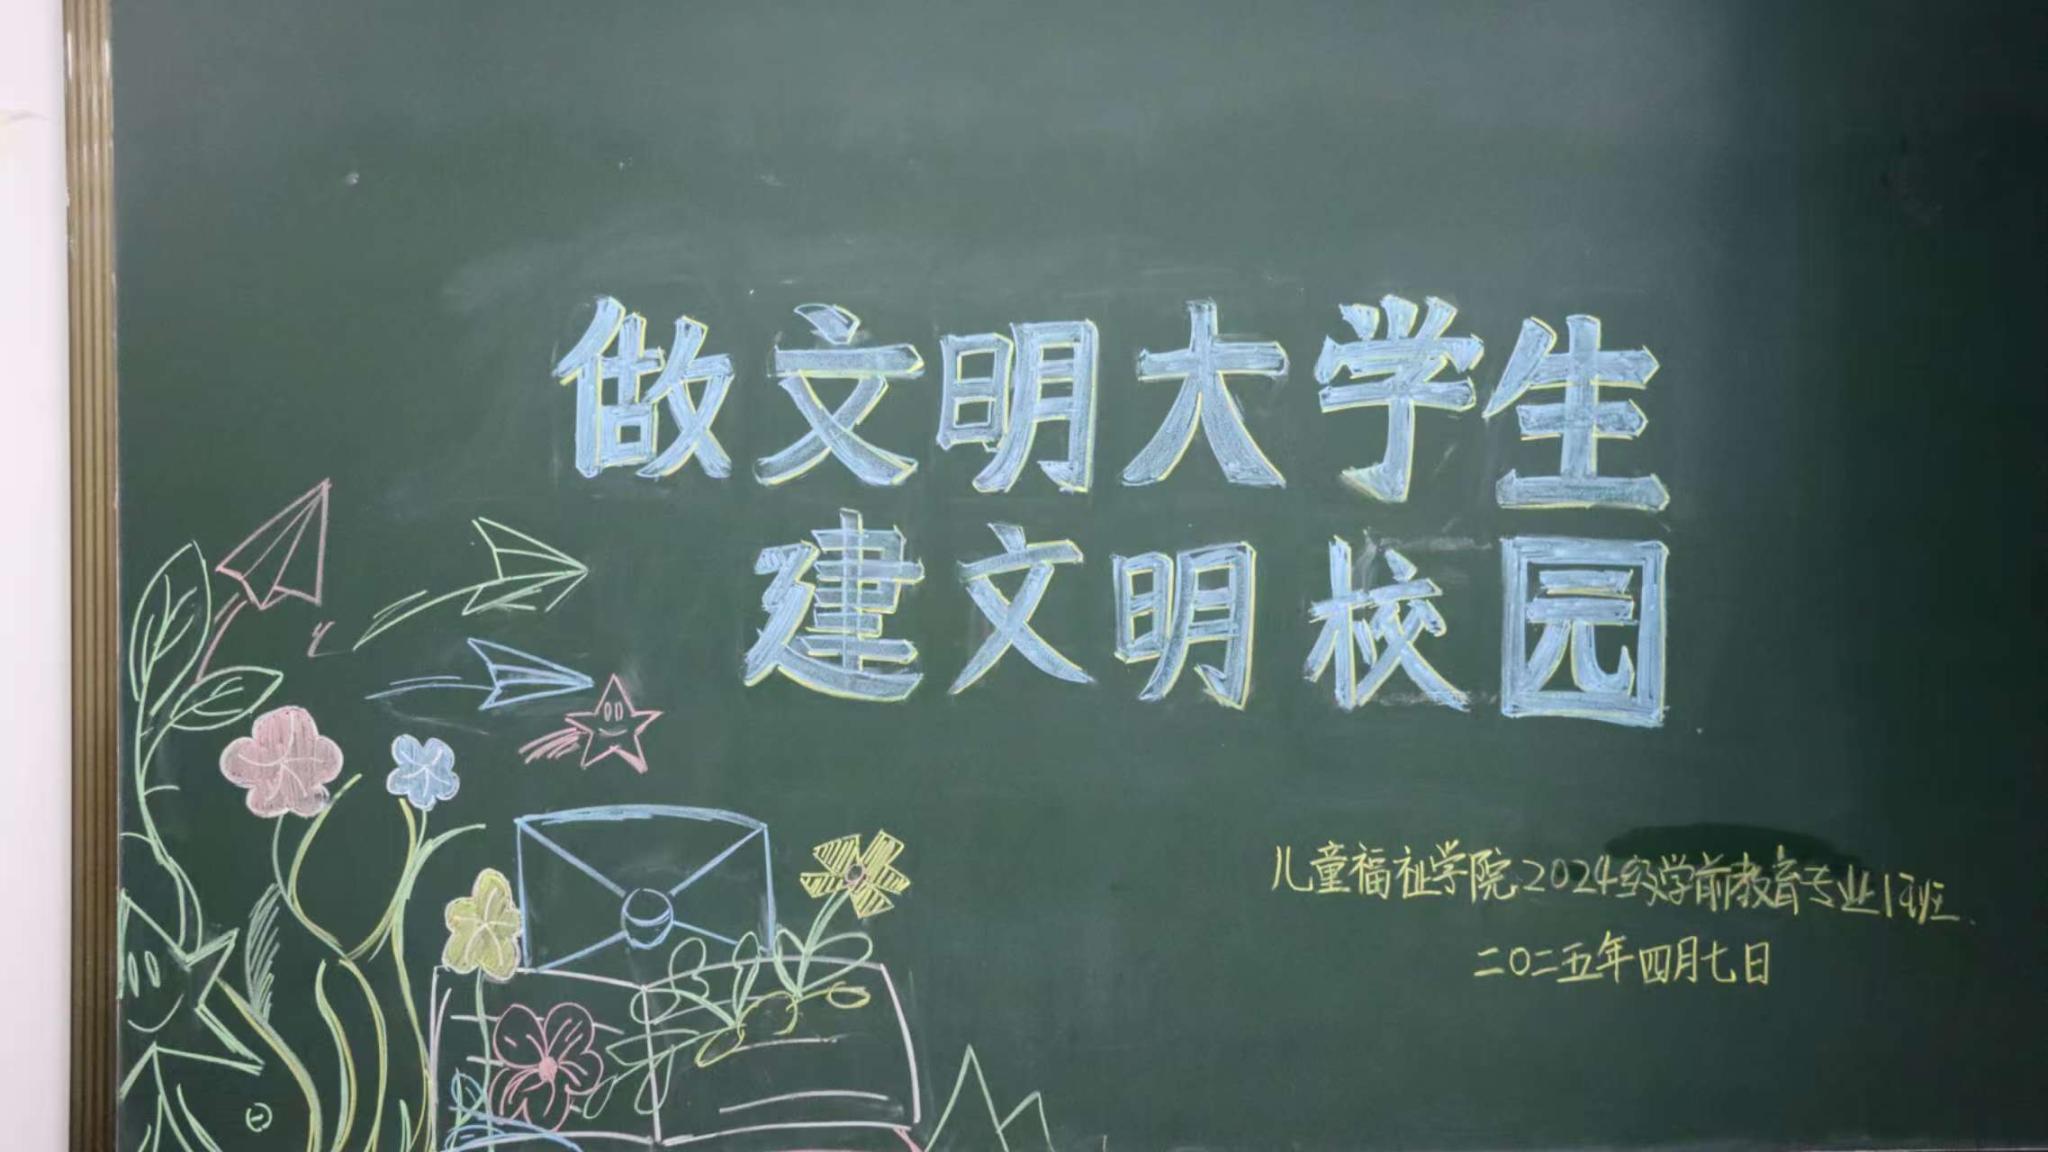 做文明大学生
建文明校园
儿童福祉学院2024级学前教育专业1班
二〇二五年四月七日